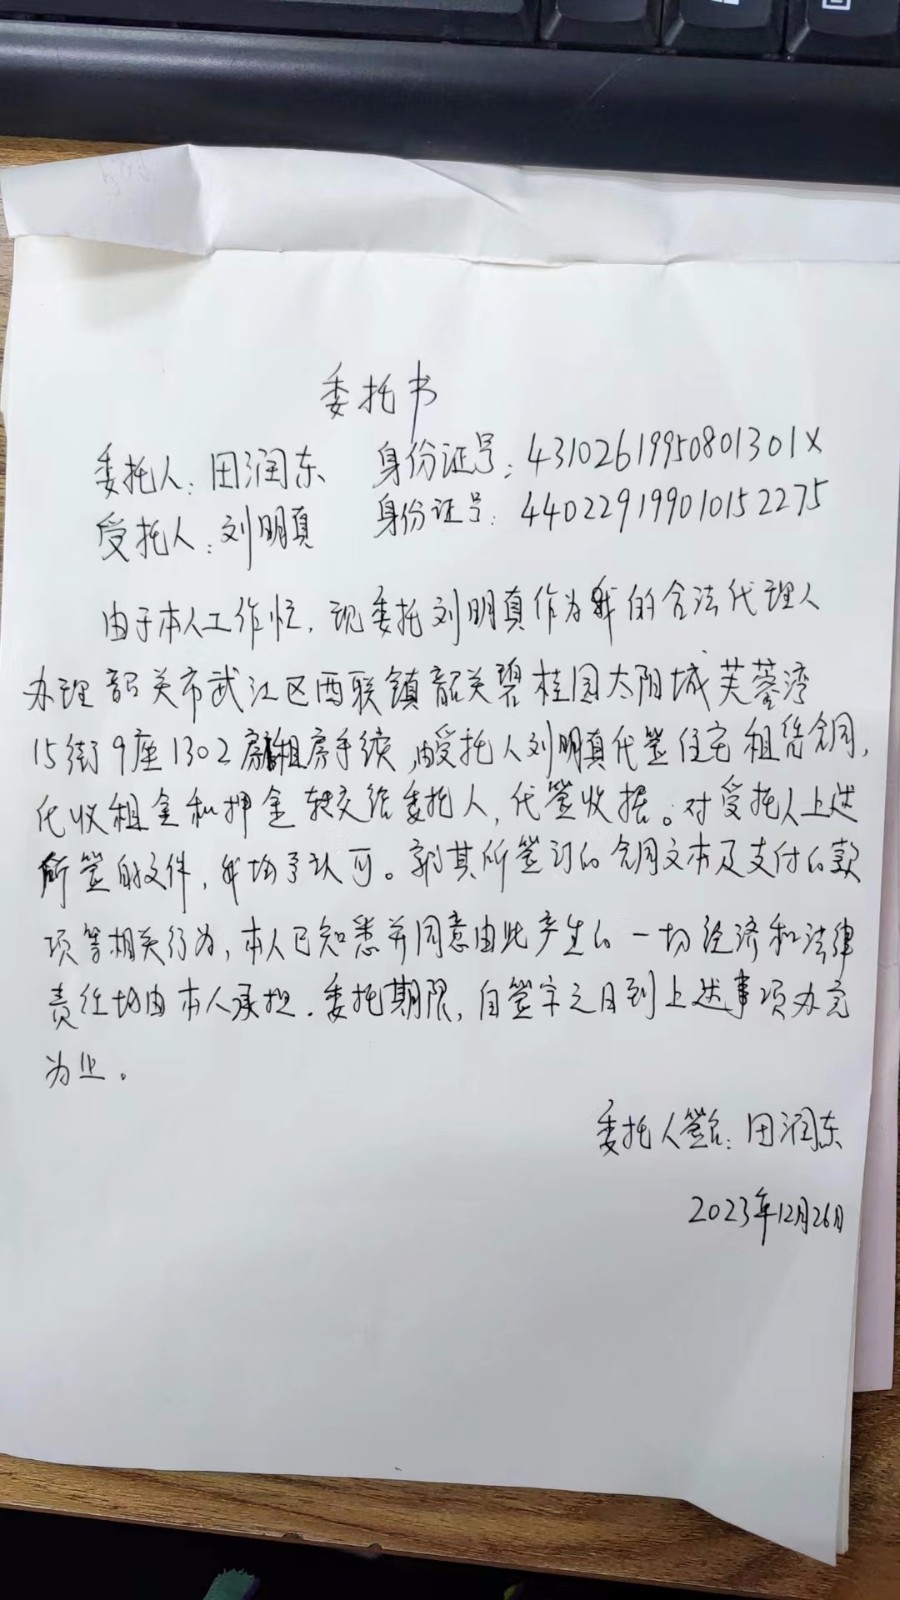 委托书
委托人：田润东 身份证号：43102619950801301X
受托人：刘明真 身份证号：440229199010152275
由于本人工作忙，现委托刘明真作为我的合法代理人
办理韶关市武江区西联镇韶关碧桂园太阳城芙蓉湾
15街9座1302房租房手续，由受托人刘明真代签住宅租赁合同，
代收租金和押金转交给委托人，代签收据。对受托人上述
所签的文件，我均予认可。那其所签订的合同文本及支付的款
项等相关行为，本人已知悉并同意由此产生的一切经济和法律
责任均由本人承担。委托期限，自签字之日到上述事项办完
为止。
委托人签名：田润东
2023年12月26日